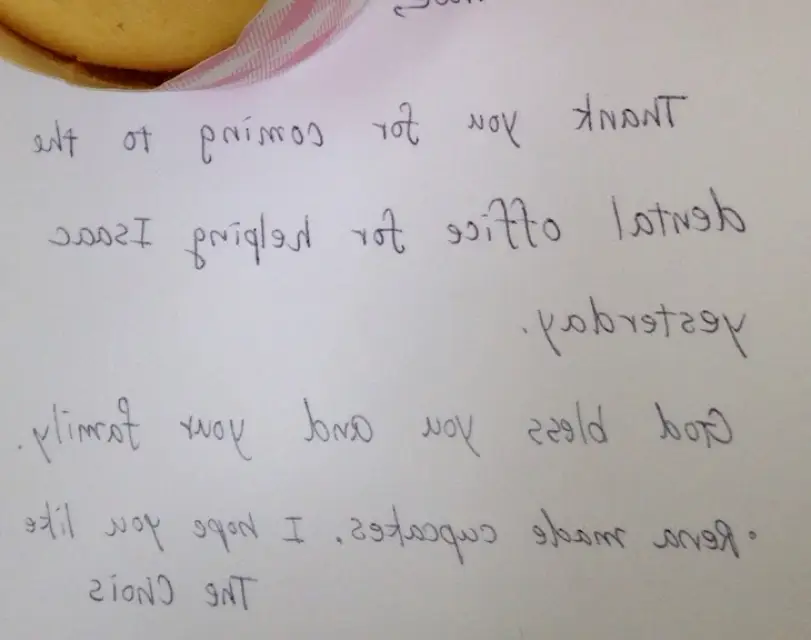 Thank you for coming to the
dental office for helping Isaac
yesterday.
God bless you and your family.
• Rena made cupcakes. I hope you like
The Chois